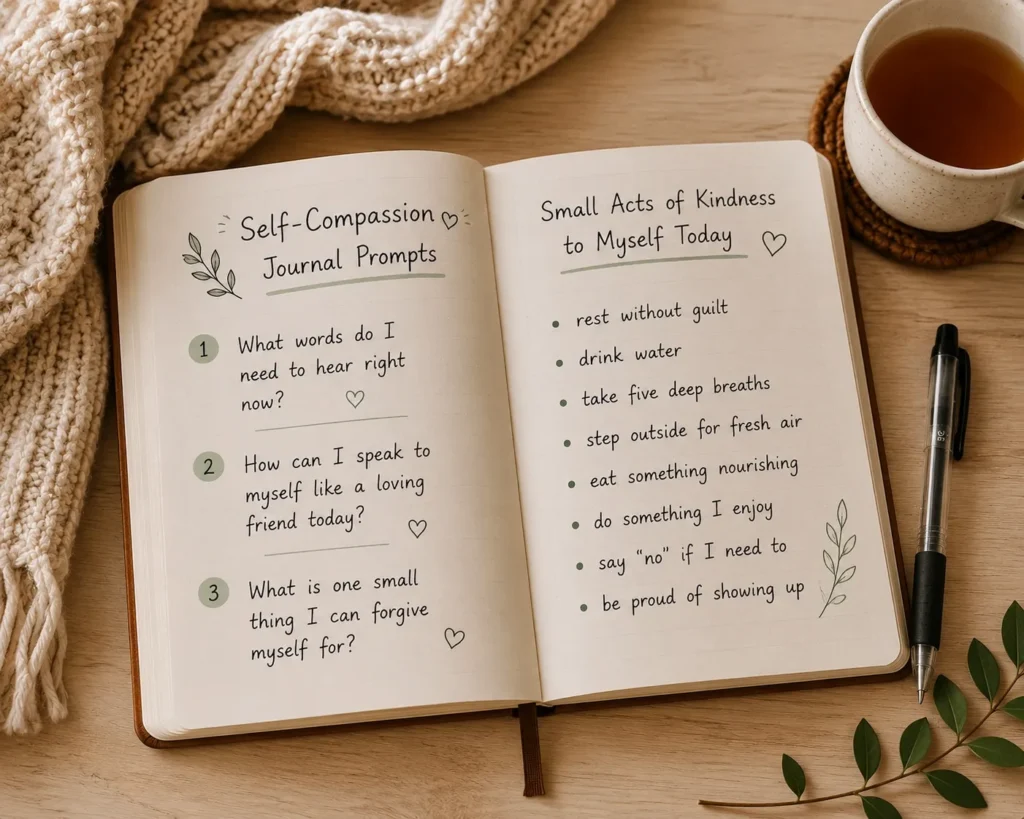 Self-Compassion
Journal Prompts
1
What words do I
need to hear right
now?
2
How can I speak to
myself like a loving
friend today?
3
What is one small
thing I can forgive
myself for?
Small Acts of Kindness
to Myself Today
• rest without guilt
• drink water
• take five deep breaths
• step outside for fresh air
• eat something nourishing
• do something I enjoy
• say "no" if I need to
• be proud of showing up